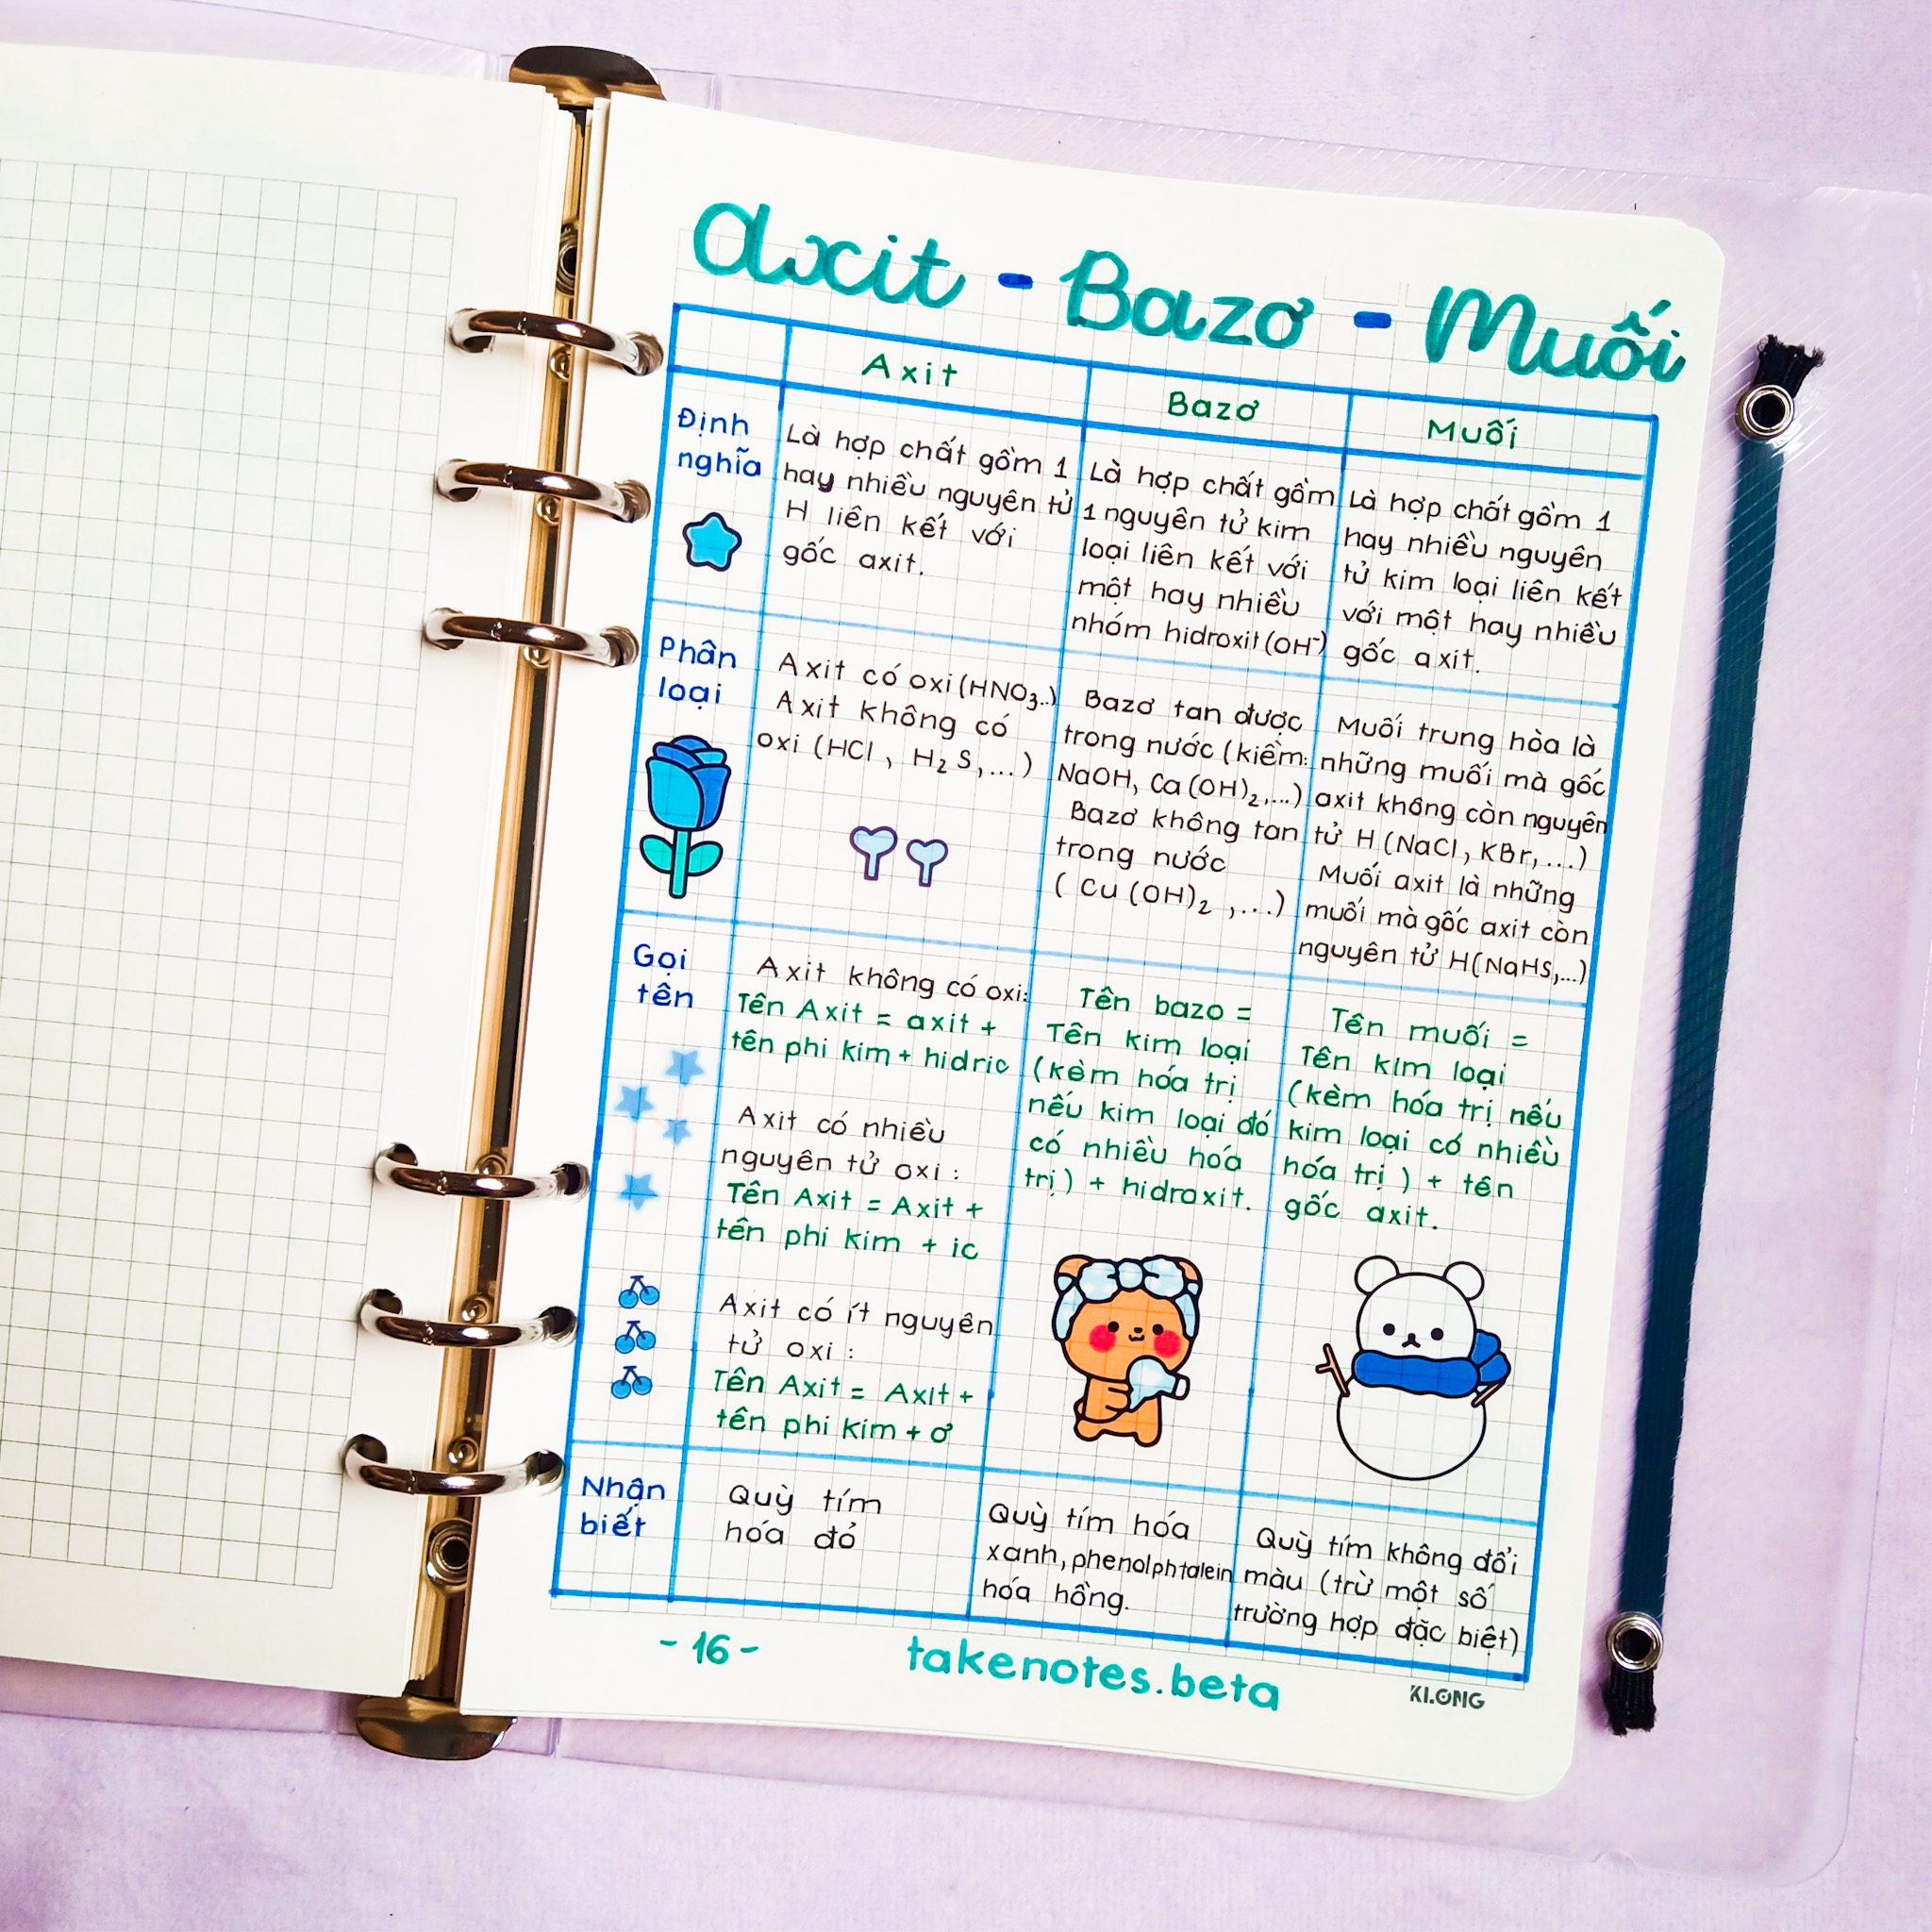 Axit - Bazơ - Muối
Axit
Bazơ
Muối
Định
nghĩa
Là hợp chất gồm 1
hay nhiều nguyên tử
H liên kết với
gốc axit.
Là hợp chất gồm
1 nguyên tử kim
loại liên kết với
một hay nhiều
nhóm hidroxit (OH⁻)
Là hợp chất gồm 1
hay nhiều nguyên
tử kim loại liên kết
với một hay nhiều
gốc axit.
Phân
loại
Axit có oxi (HNO₃..)
Axit không có
oxi (HCl, H₂S,...)
Bazơ tan được
trong nước (kiềm:
NaOH, Ca(OH)₂,...)
Bazơ không tan
trong nước
(Cu(OH)₂,...)
Muối trung hòa là
những muối mà gốc
axit không còn nguyên
tử H (NaCl, KBr,...)
Muối axit là những
muối mà gốc axit còn
nguyên tử H(NaHS,...)
Gọi
tên
Axit không có oxi:
Tên Axit = axit +
tên phi kim + hidric
Axit có nhiều
nguyên tử oxi :
Tên Axit = Axit +
tên phi kim + ic
Axit có ít nguyên
tử oxi :
Tên Axit = Axit +
tên phi kim + ơ
Tên bazo =
Tên kim loại
(kèm hóa trị
nếu kim loại đó
có nhiều hóa
trị) + hidroxit.
Tên muối =
Tên kim loại
(kèm hóa trị nếu
kim loại có nhiều
hóa trị) + tên
gốc axit.
Nhận
biết
Quỳ tím
hóa đỏ
Quỳ tím hóa
xanh, phenolphtalein
hóa hồng.
Quỳ tím không đổi
màu (trừ một số
trường hợp đặc biệt)
- 16 -
takenotes.beta
KLONG